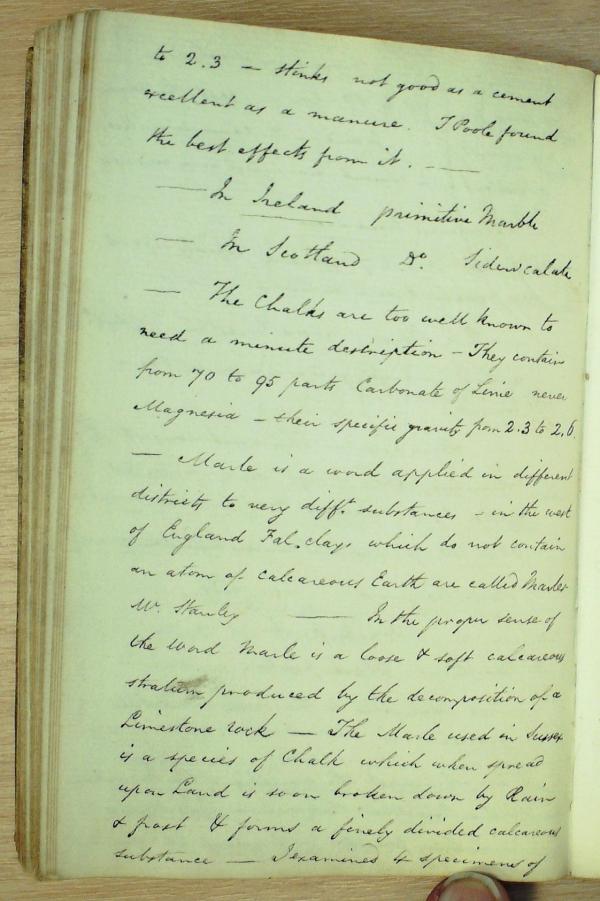 to 2.3 — stinks not good as a cement
excellent as a manure. T Poole found
the best effects from it. —
— In Ireland primitive Marble
— In Scotland Do.
— The Chalks are too well known to
need a minute description – They contain
from 70 to 95 parts Carbonate of Lime never
Magnesia – their specific gravity from 2.3 to 2.6.
— Marle is a word applied in different
districts to very difft. substances – in the west
of England clays which do not contain
an atom of calcareous Earth are called Marles
Mr. Stanley — In the proper sense of
the word Marle is a loose & soft calcareous
stratum produced by the decomposition of a
Limestone rock — The Marle used in Sussex
is a species of Chalk which when spread
upon Land is soon broken down by Rain
& frost & forms a finely divided calcareous
substance — I examined 4 specimens of